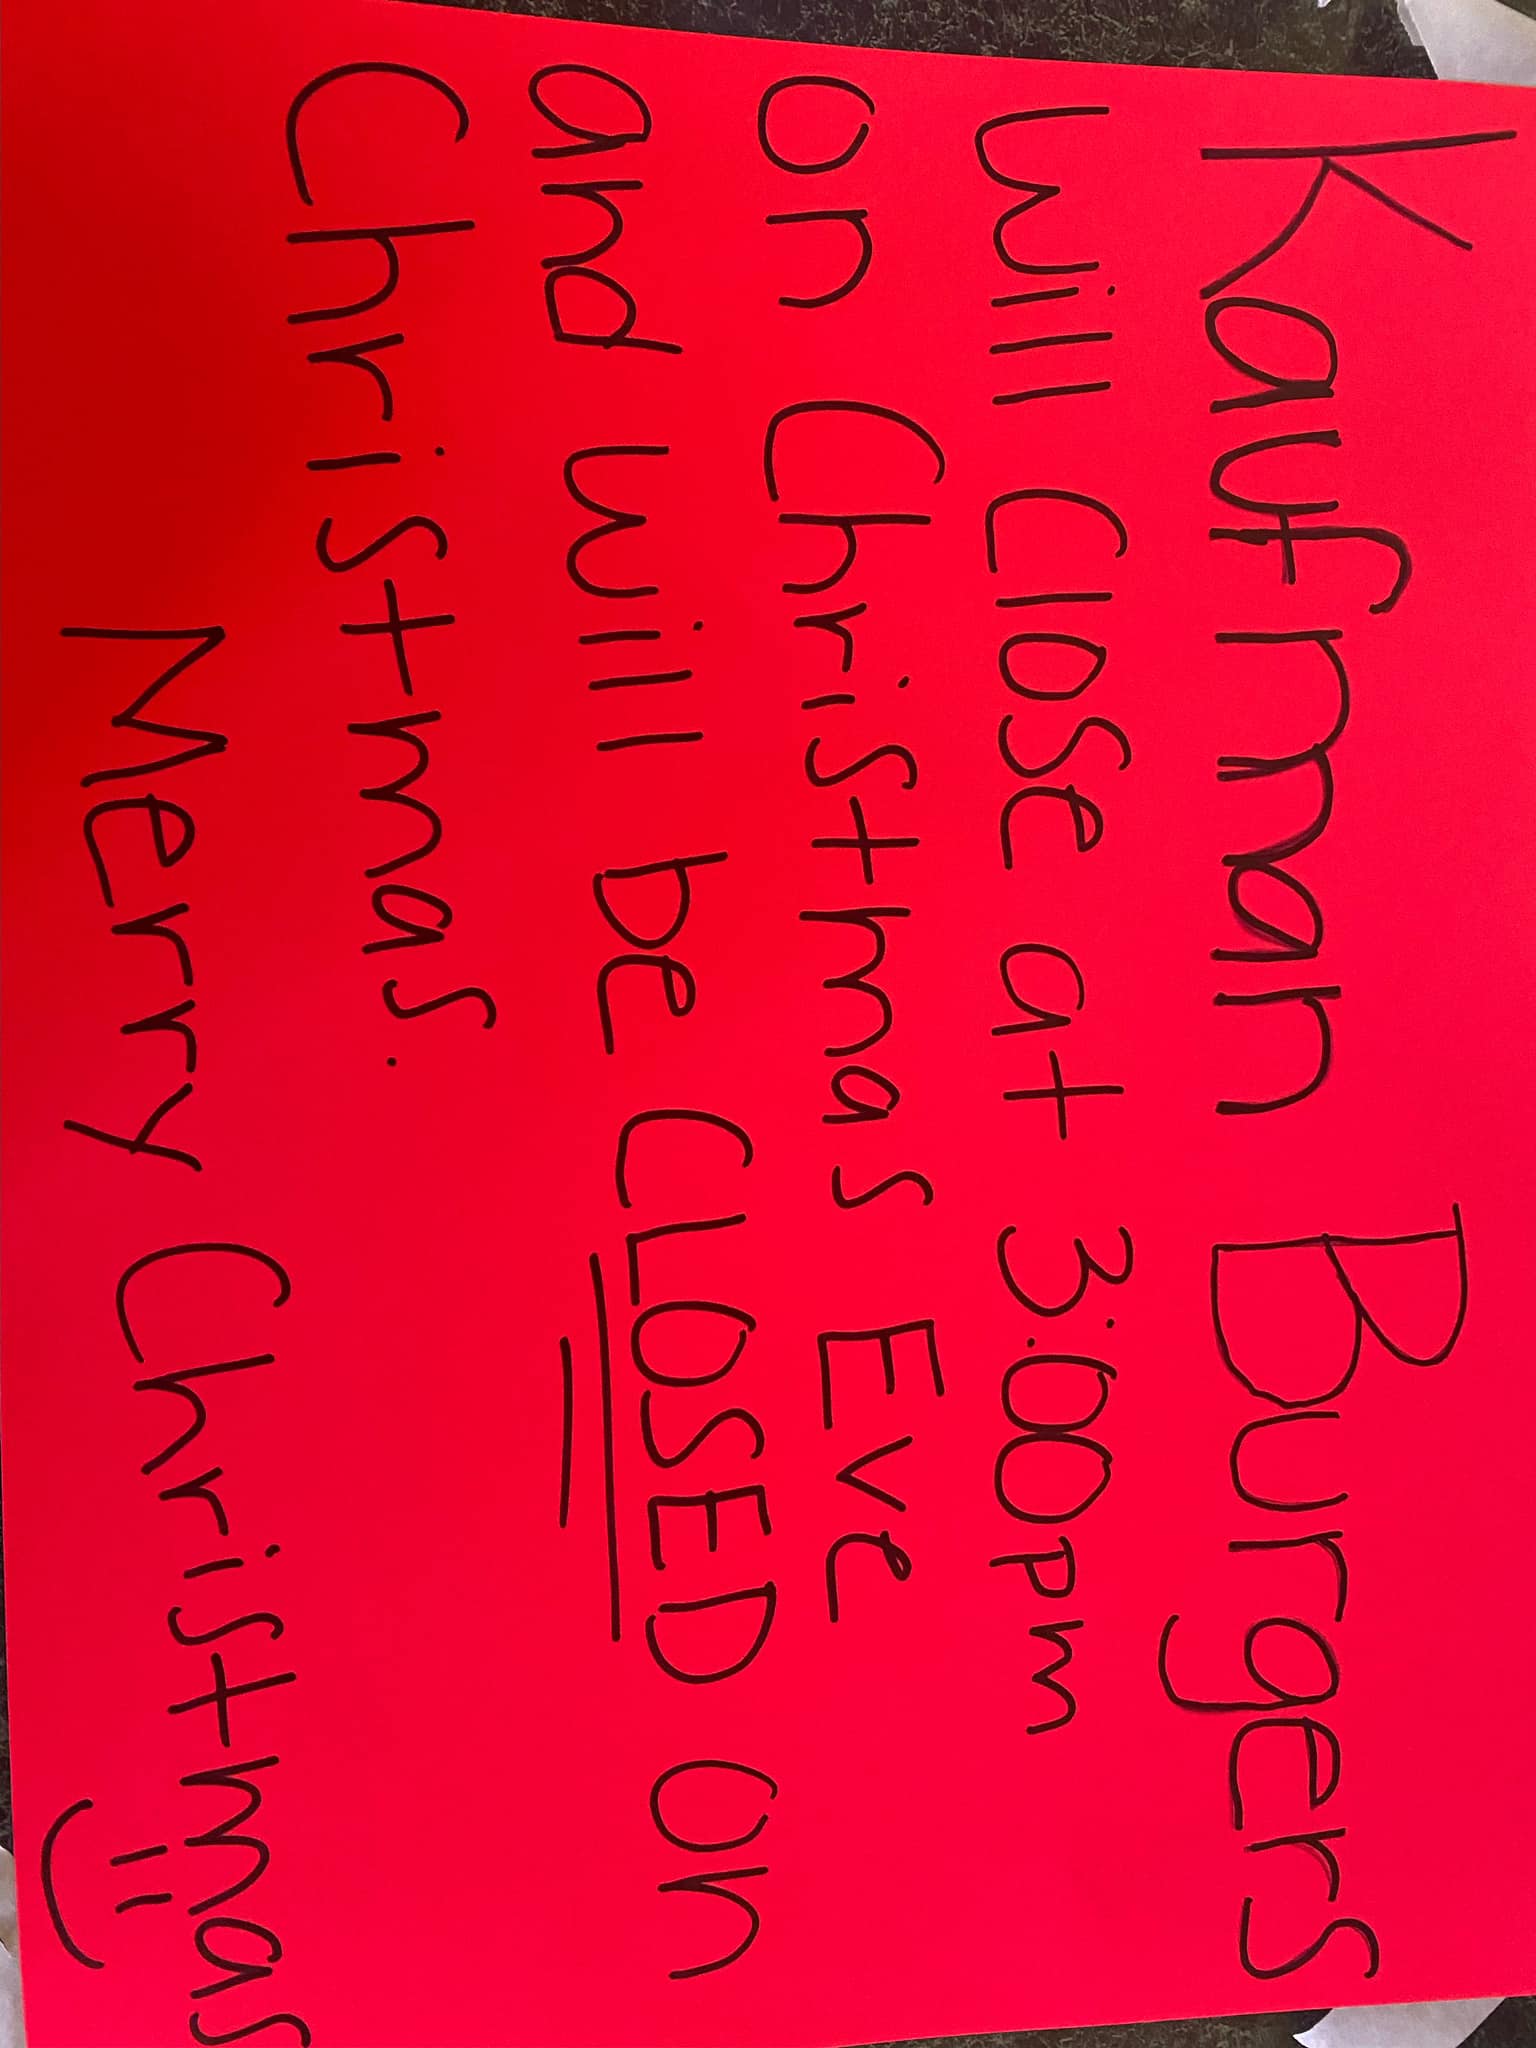 Kaufman Burgers
will close at 3:00pm
on Christmas Eve
and will be CLOSED on
Christmas.
Merry Christmas